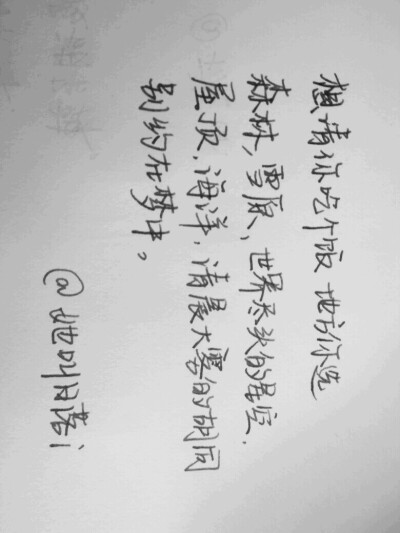 想请你吃个饭 地方你选
森林，雪原、世界尽头的星空.
屋顶，海洋，清晨大雾的胡同
别约在梦中。
@她叫日诺i